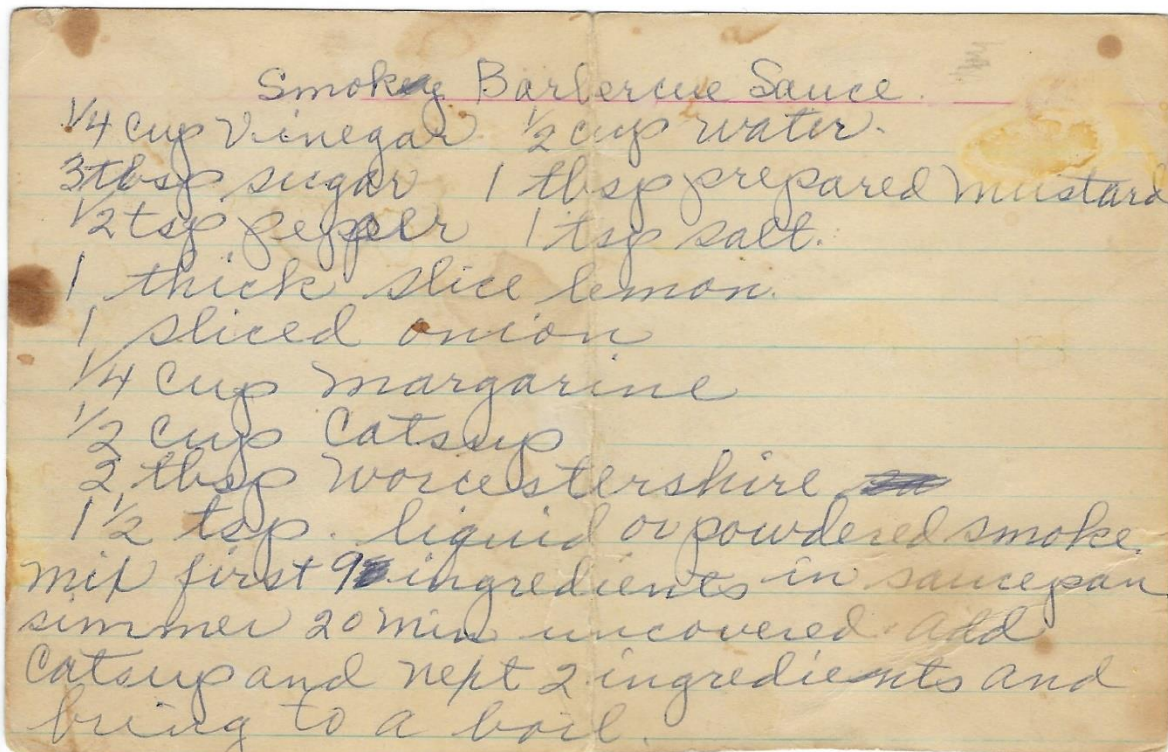 Smokey Barbercue Sauce.
1/4 cup Vinegar 1/2 cup water.
3 tbsp sugar 1 tbsp prepared mustard
1/2 tsp pepper 1 tsp salt.
1 thick slice lemon.
1 sliced onion
1/4 cup margarine
1/2 cup Catsup
2 tbsp Worcestershire
1 1/2 tsp. liquid or powdered smoke.
mix first 9 ingredients in saucepan
simmer 20 min uncovered. add
Catsup and next 2 ingredients and
bring to a boil.